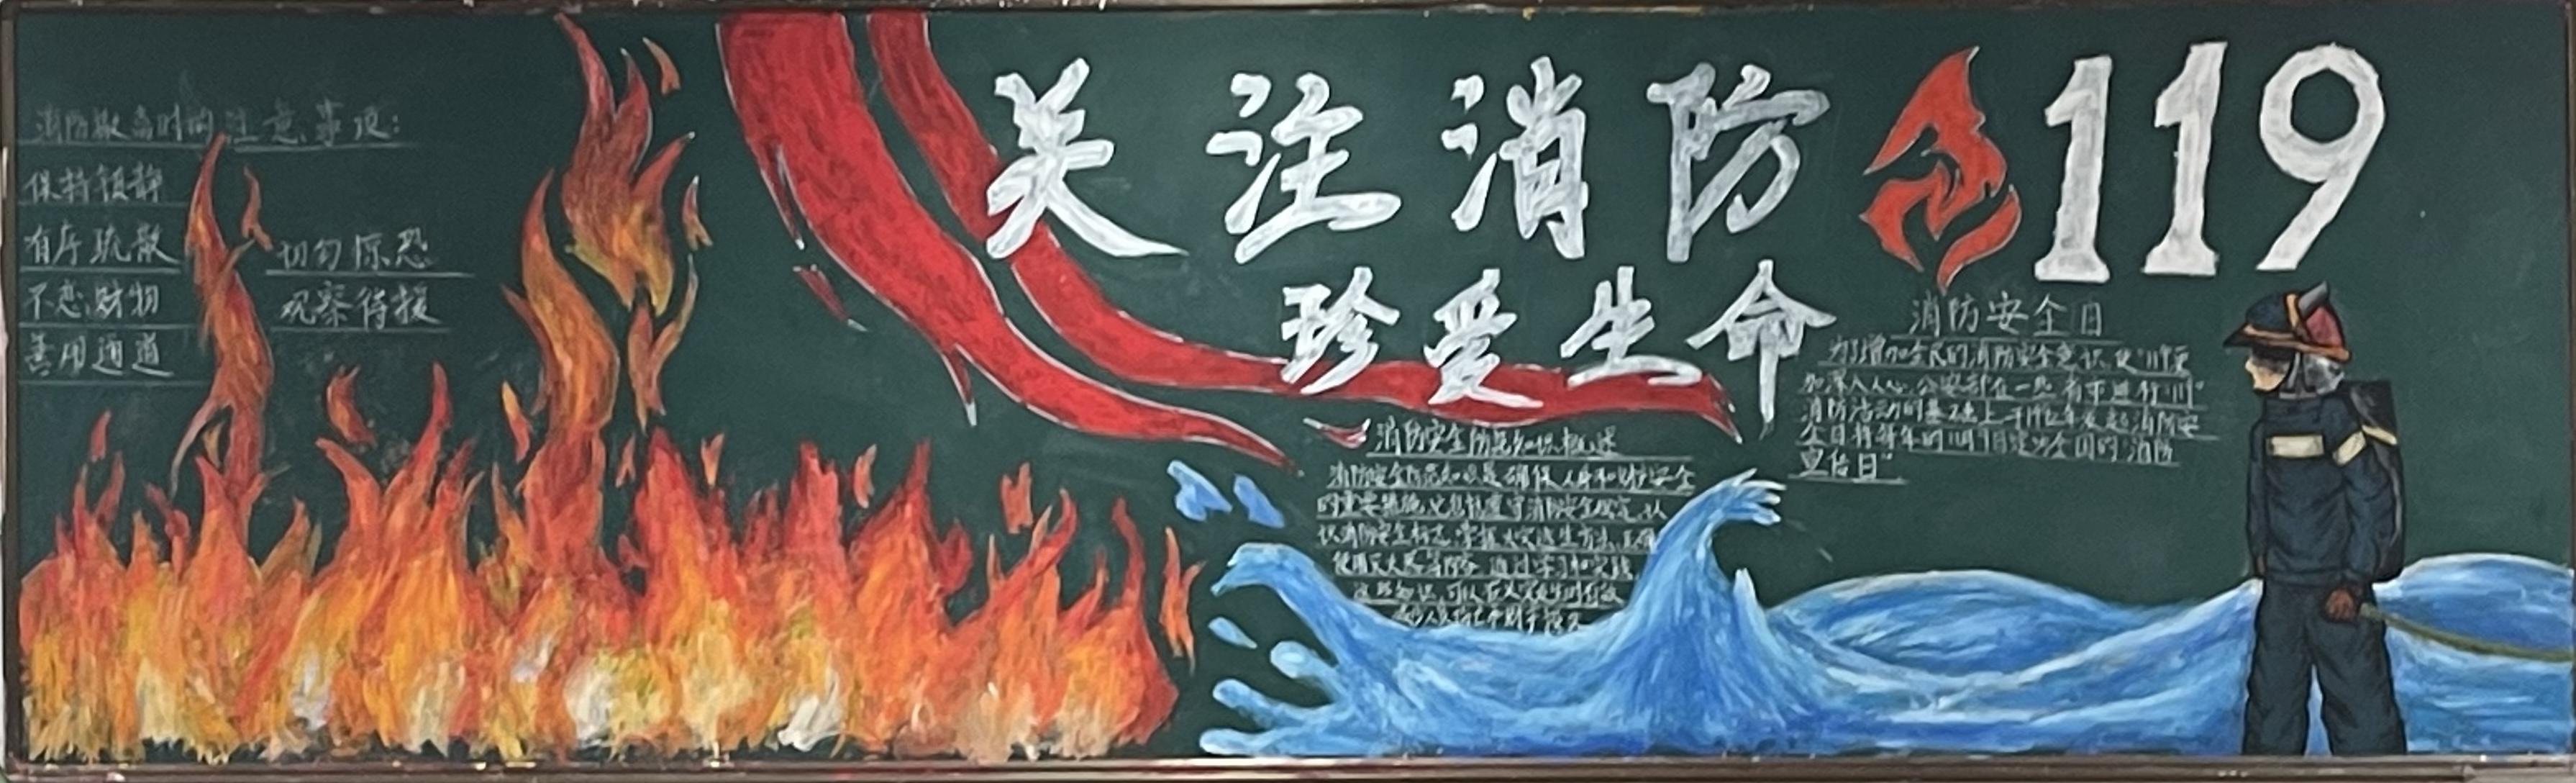 关注消防 119
珍爱生命
消防疏散时的注意事项:
保持镇静
有序疏散
不恋财物
善用通道
切勿惊恐
观察待援
消防安全防范知识概述
消防安全防范知识是确保人身和财产安全
的重要措施,它包括遵守消防安全规定,认
识消防安全标志,掌握火灾逃生方法,正确
使用灭火器等内容 通过学习和实践
这些知识,可以在火灾发生时有效
减少人员伤亡和财产损失
消防安全日
为了增加全民的消防安全意识,使"119"更
加深入人心,公安部在一些省市进行"119"
消防活动的基础上,于1992年发起消防安
全日将每年的11月9日定为全国的"消防
宣传日"